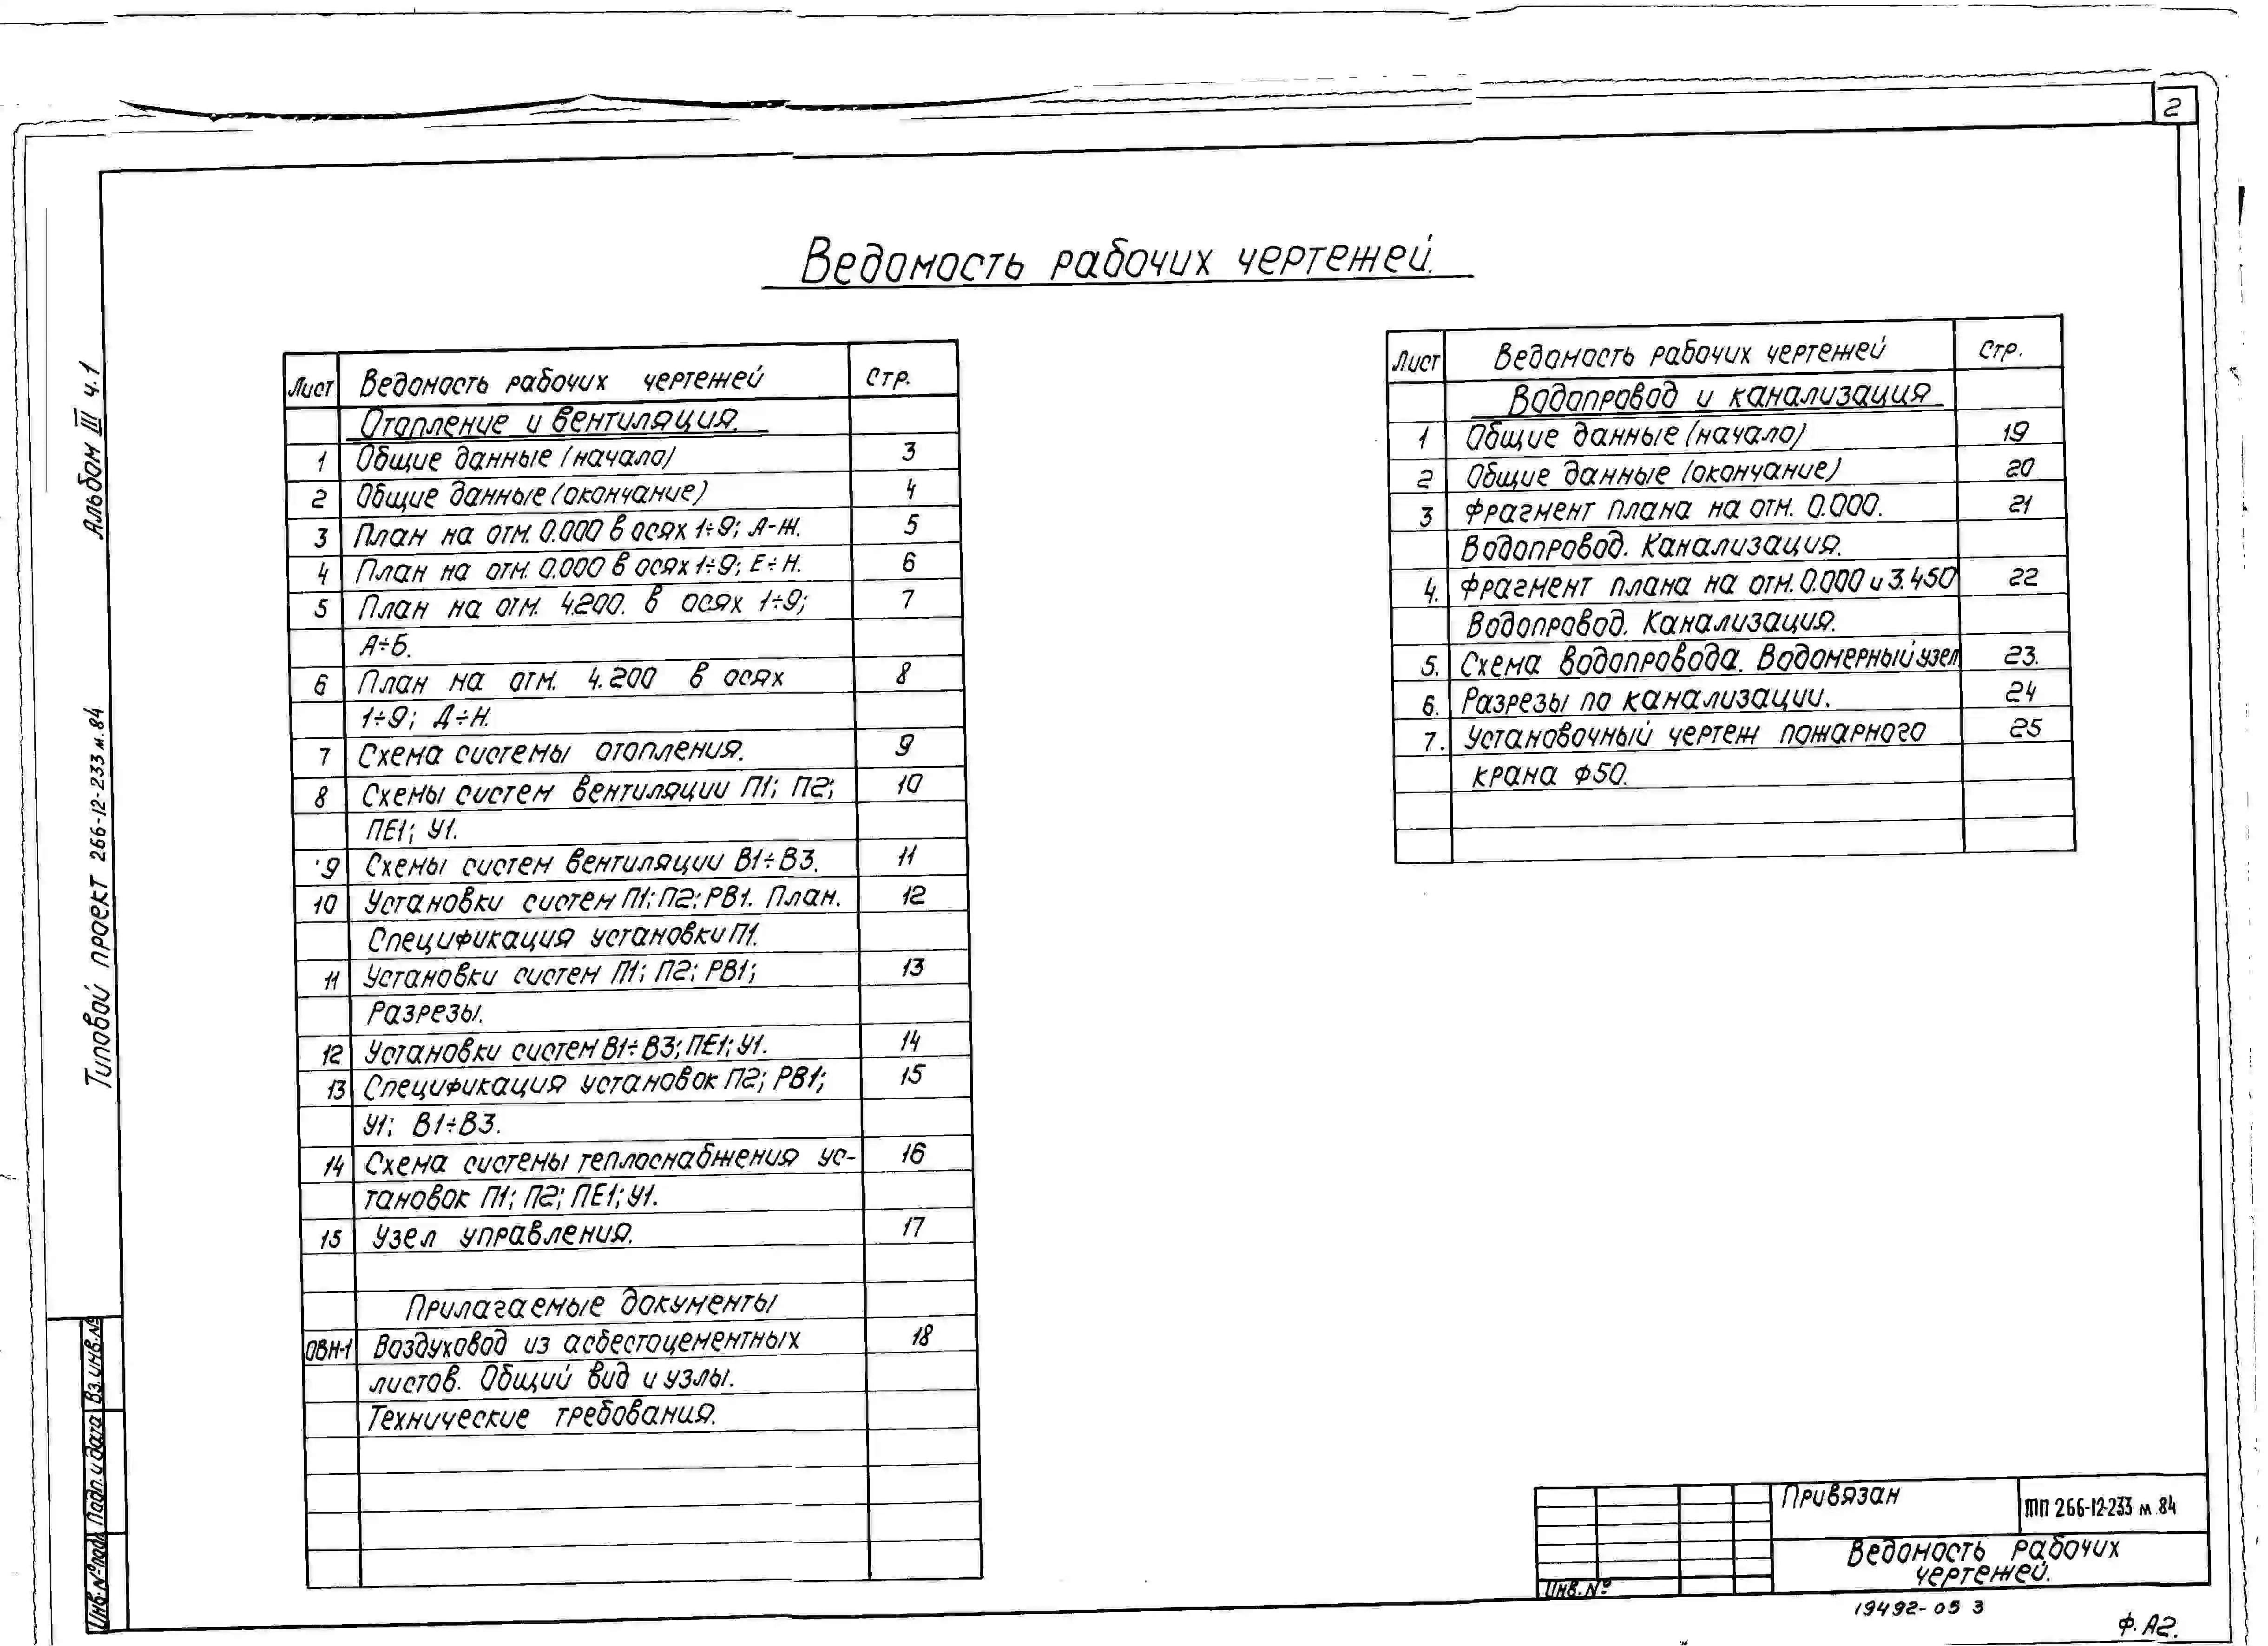 2
Ведомость рабочих чертежей.
Альбом III ч.1
Типовой проект 266-12-233 м.84
Лист Ведомость рабочих чертежей Стр.
Отопление и вентиляция.
1 Общие данные (начало) 3
2 Общие данные (окончание) 4
3 План на отм. 0.000 в осях 1÷9; А-Ж. 5
4 План на отм. 0.000 в осях 1÷9; Е÷Н. 6
5 План на отм. 4.200. в осях 1÷9; 7
А÷Б.
6 План на отм. 4.200 в осях 8
1÷9; Д÷Н.
7 Схема системы отопления. 9
8 Схемы систем вентиляции П1; П2; 10
ПЕ1; У1.
9 Схемы систем вентиляции В1÷В3. 11
10 Установки систем П1; П2; РВ1. План. 12
Спецификация установки П1.
11 Установки систем П1; П2; РВ1; 13
Разрезы.
12 Установки систем В1÷В3; ПЕ1; У1. 14
13 Спецификация установок П2; РВ1; 15
У1; В1÷В3.
14 Схема системы теплоснабжения ус- 16
тановок П1; П2; ПЕ1; У1.
15 Узел управления. 17
Прилагаемые документы
ОВН-1 Воздуховод из асбестоцементных 18
листов. Общий вид и узлы.
Технические требования.
Лист Ведомость рабочих чертежей Стр.
Водопровод и канализация
1 Общие данные (начало) 19
2 Общие данные (окончание) 20
3 Фрагмент плана на отм. 0.000. 21
Водопровод. Канализация.
4. Фрагмент плана на отм. 0.000 и 3.450 22
Водопровод. Канализация.
5. Схема водопровода. Водомерный узел 23.
6. Разрезы по канализации. 24
7. Установочный чертеж пожарного 25
крана Ф50.
Инв.№подл. Подп. и дата Вз. инв.№
Привязан
ТП 266-12-233 м.84
Ведомость рабочих
чертежей.
Инв.№
19492-05 3
Ф.А2.